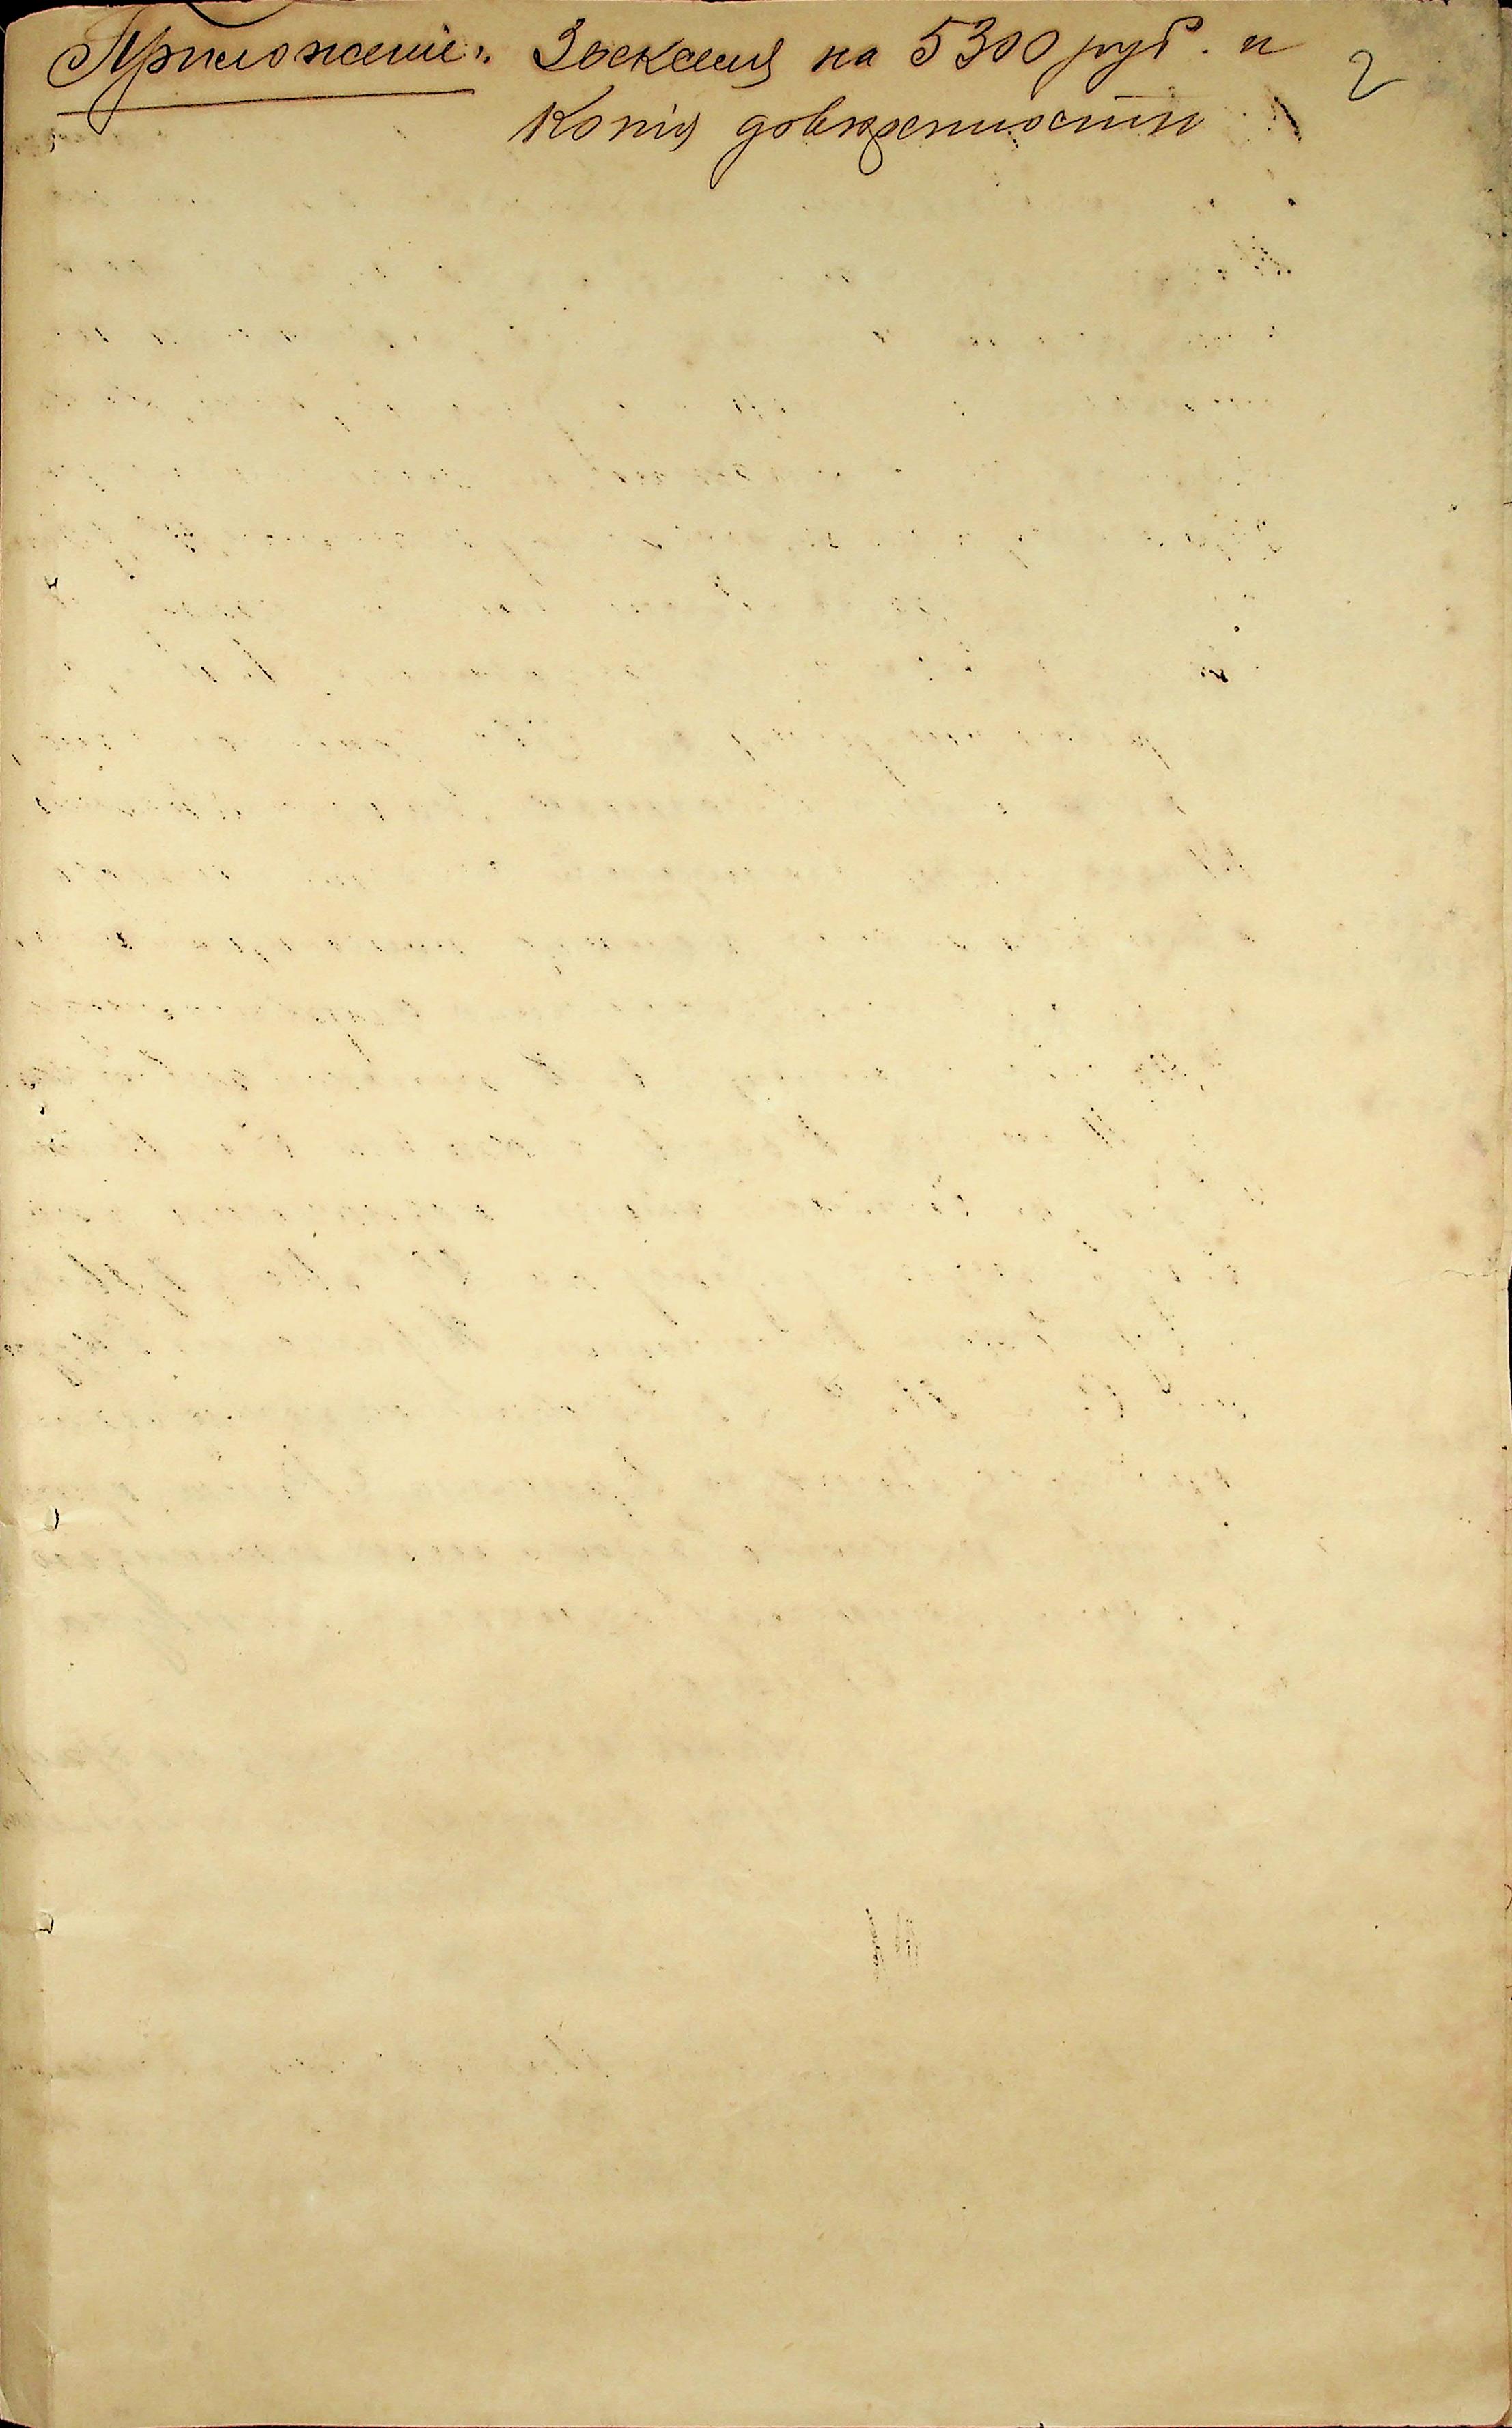 Приложеніе: 3 векселя на 5300 руб. и 2
Копія довѣренности